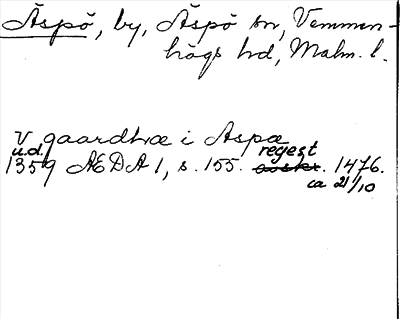 Äspö, by, Äspö sn, Vemmen-
högs hd, Malm. l.
V gaardhæ i Aspæ
u.d.
1359 ÆDA 1, s. 155. regest avskr. 1476.
ca 21/10